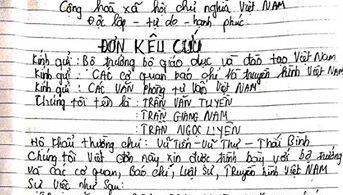 Cộng hoà xã hội chủ nghĩa Việt NAM
Độc lập - tự do - hạnh phúc
ĐƠN KÊU CỨU
Kính gửi: Bộ trưởng bộ giáo dục và đào tạo Việt Nam
Kính gửi: CÁC cơ quan báo chí và truyền hình Việt NAM
Kính gửi: CÁC VĂN phòng tư vấn Việt NAM
Chúng tôi tên là: TRẦN VĂN TUYÊN
TRẦN GIANG NAM
TRẦN NGỌC UYÊN
Hộ khẩu thường chú: Vũ Tiến - Vũ Thư - Thái Bình
Chúng tôi viết đơn này xin được trình bày với bộ trưởng
và các cơ quan, Báo chí, luật Sư, Truyền hình Việt NAM
Sự việc như Sau: